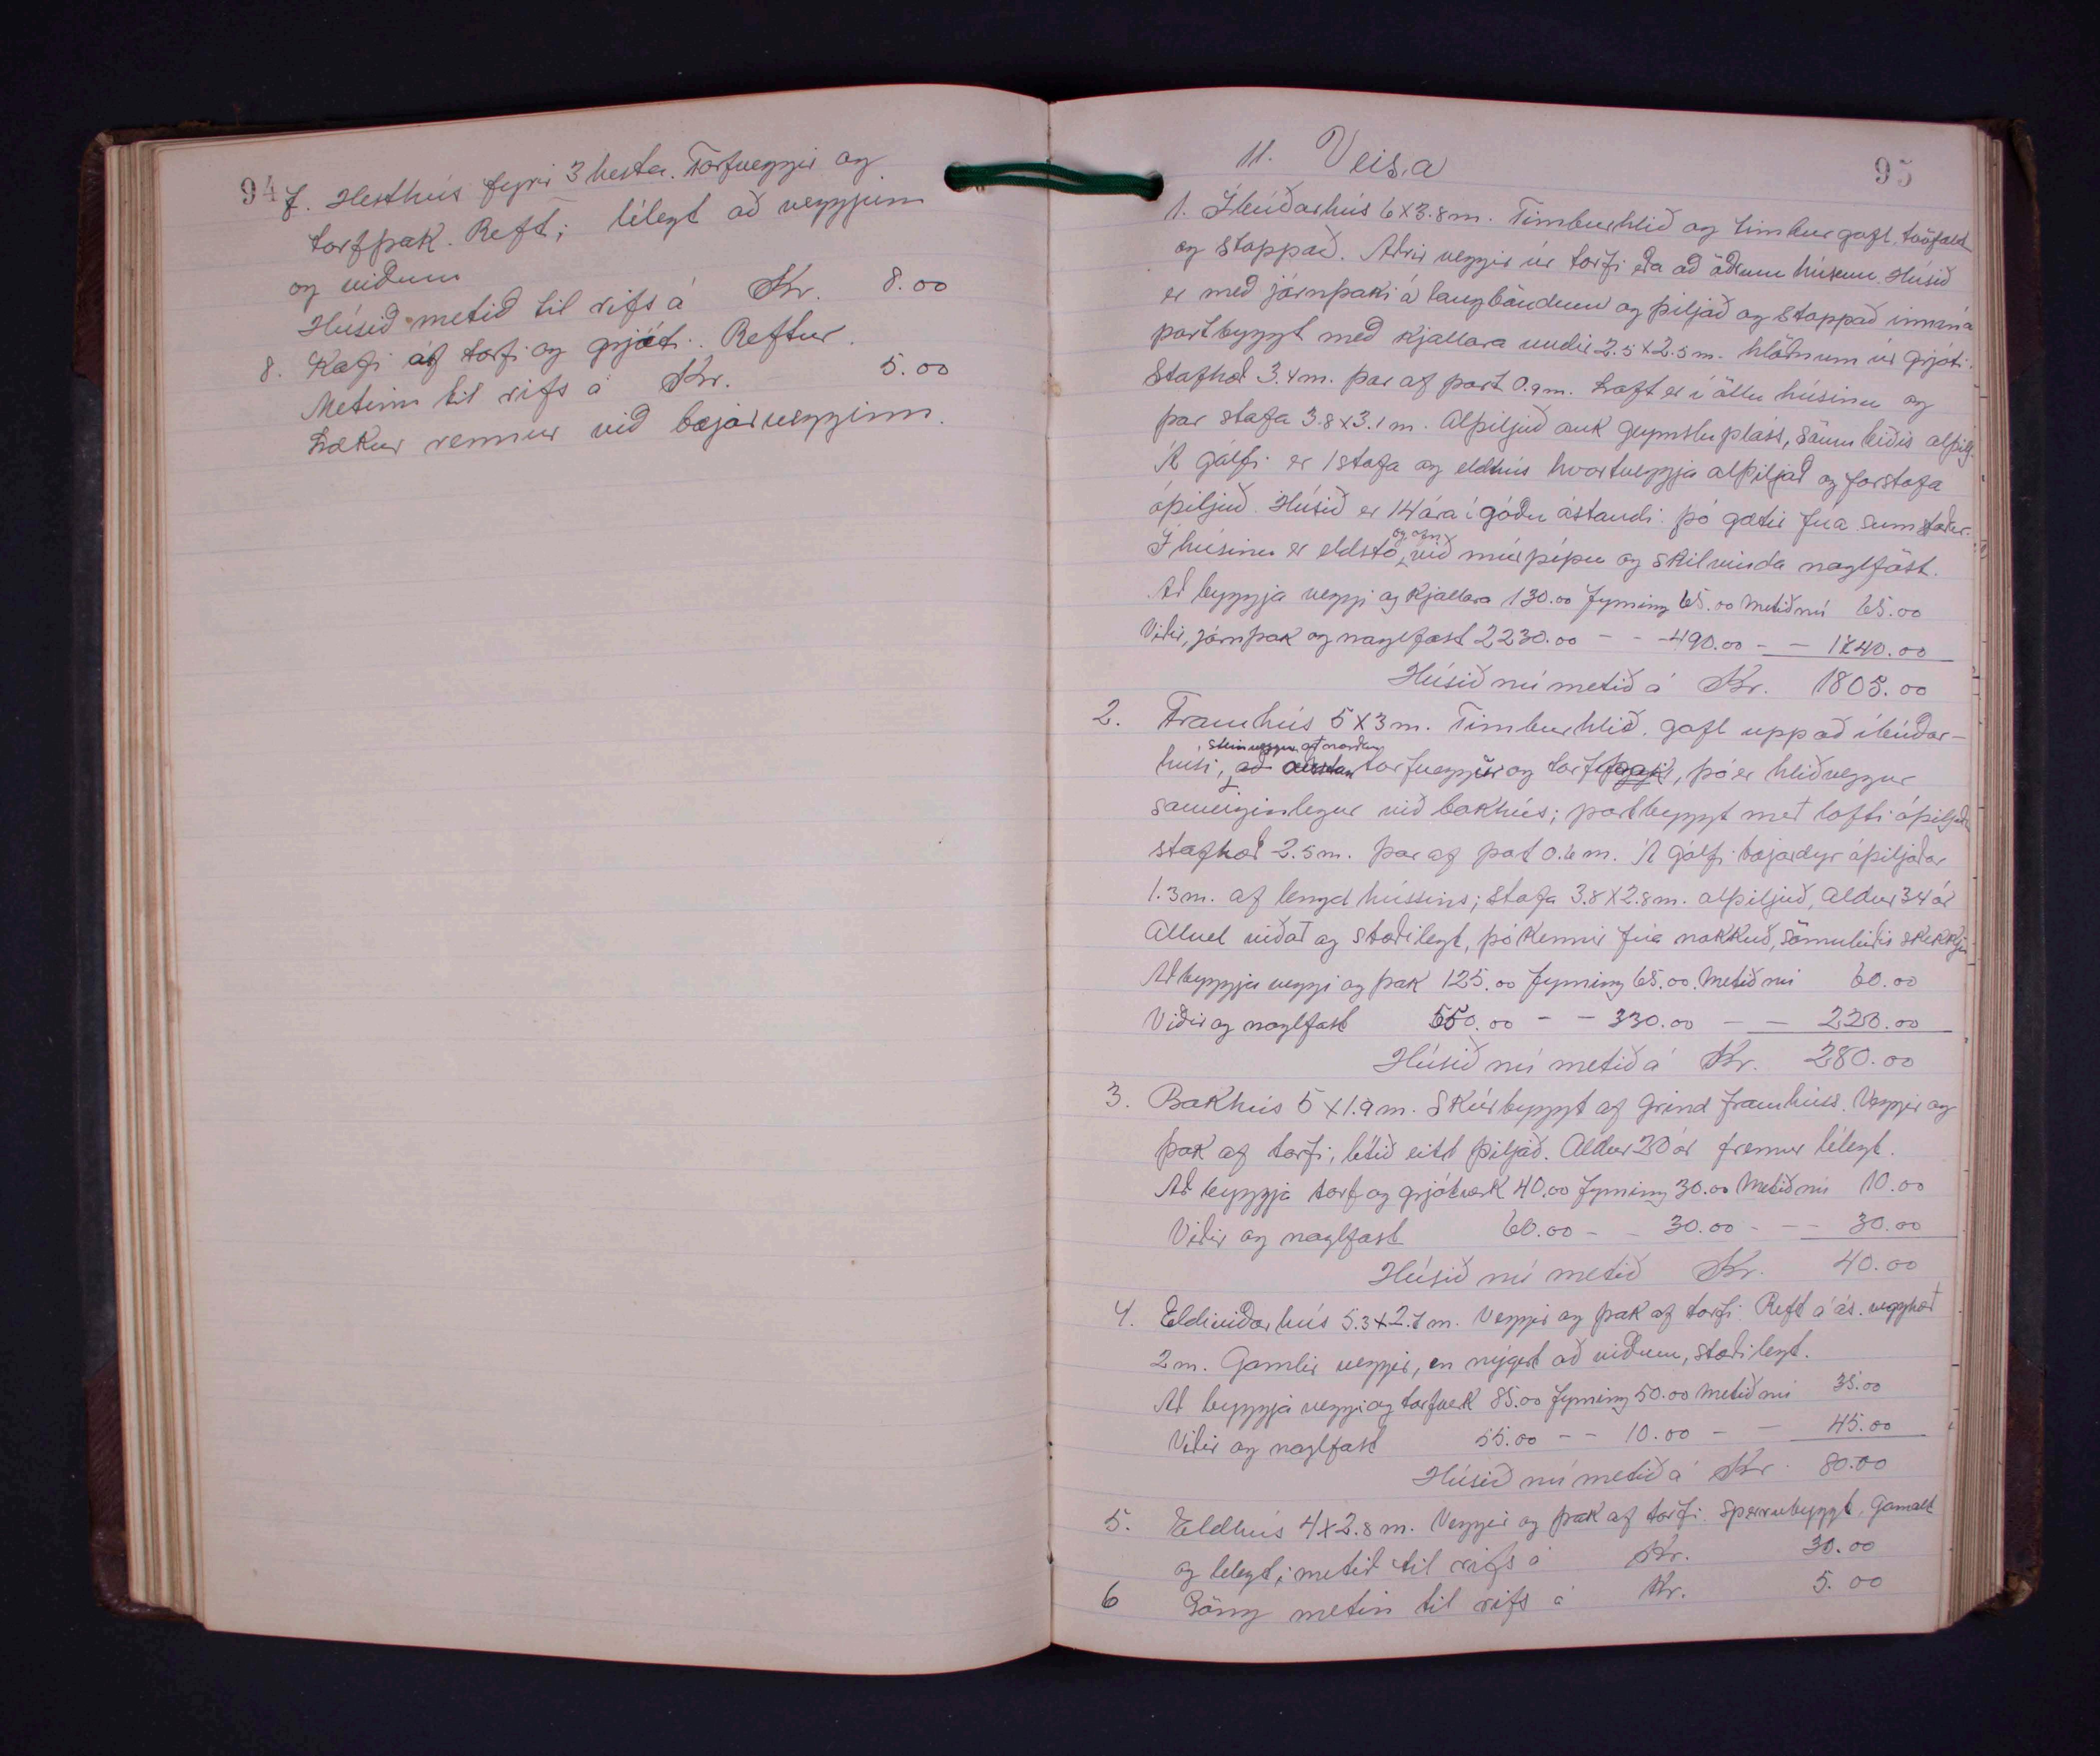 94
7. Hesthús fyrir 3 hesta. Torfveggir og
torfþak. Reft; lélegt að veggjum
og viðum
Húsið metið til rifs á Kr. 8.00
8. Kofi af torfi og grjóti. Reftur.
Metinn til rifs á Kr. 5.00
Lækur rennur við bæjarvegginn.
95
11. Veisa
1. Íbúðarhús 6x3.8m. Timburhlið og timburgafl, tvöfalt
og stoppað. Aðrir veggir úr torfi eða að öðrum húsum. Húsið
er með járnþaki á langböndum og þiljað og stoppað innan á
portbyggt með kjallara undir 2.5x2.5m. hlöðnum úr grjóti.
Stafhæð 3.4m. þar af port 0.9m. Loft er í öllu húsinu og
þar stofa 3.8x3.1m. Alþiljuð auk geymslupláss, sömuleiðis alþilj.
Á gólfi er 1 stofa og eldhús hvortveggja alþiljað og forstofa
óþiljuð. Húsið er 14 ára í góðu ástandi. þó gætir fúa sumstaðar.
Í húsinu er eldstó og ofn við múrpípu og skilvinda naglföst.
Að byggja veggi og kjallara 130.00 fyrning 65.00 metið nú 65.00
Viðir, járnþak og naglfast 2230.00 - - 490.00 - - 1740.00
Húsið nú metið á Kr. 1805.00
2. Framhús 5x3m. Timburhlið, gafl upp að íbúðar-
húsi, steinveggur að norðan, torfveggir og torfþak, þó er hliðveggur
sameiginlegur við bakhús; portbyggt með lofti óþiljuðu
stafhæð 2.5m. þar af port 0.6m. Á gólfi bæjardyr óþiljaðar
1.3m. af lengd hússins; stofa 3.8x2.8m. alþiljuð, aldur 34 ár
Allvel viðað og stæðilegt, þó kennir fúa nokkuð, sömuleiðis skekkju
Að byggja veggi og þak 125.00 fyrning 65.00. Metið nú 60.00
Viðir og naglfast 550.00 - - 330.00 - - 220.00
Húsið nú metið á Kr. 280.00
3. Bakhús 5x1.9m. Skúrbyggt af grind framhúss. Veggir og
þak af torfi, lítið eitt þiljað. Aldur 20 ár fremur lélegt.
Að byggja torf og grjótverk 40.00 fyrning 30.00 Metið nú 10.00
Viðir og naglfast 60.00 - - 30.00 - - - 30.00
Húsið nú metið Kr. 40.00
4. Eldiviðarhús 5.3x2.7m. Veggir og þak af torfi. Reft á ás. vegghæð
2m. Gamlir veggir, en nýgert að viðum, stæðilegt.
Að byggja veggi og torfverk 85.00 fyrning 50.00 metið nú 35.00
Viðir og naglfast 55.00 - - 10.00 - - 45.00
Húsið nú metið á Kr. 80.00
5. Eldhús 4x2.8m. Veggir og þak af torfi. Sperrubyggt, Gamalt
og lélegt; metið til rifs á Kr. 30.00
6 Göng metin til rifs á Kr. 5.00